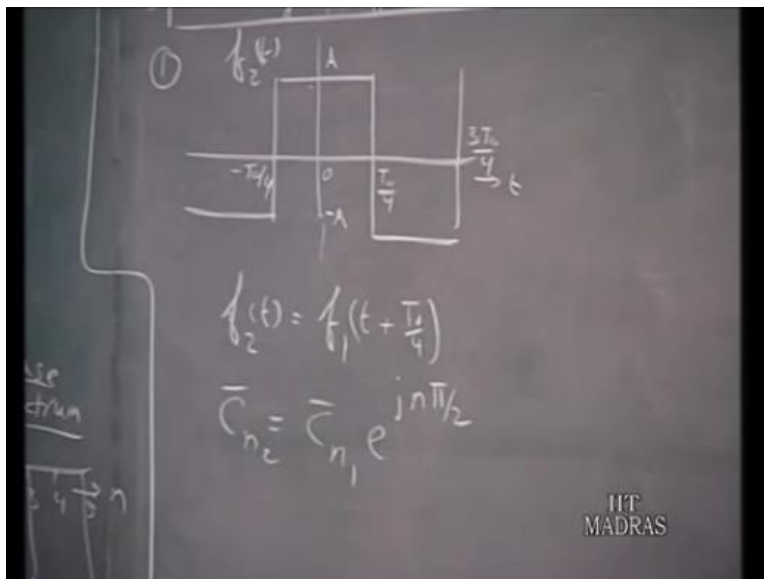 ①
f₂(t)
A
-T₀/4
0
T₀/4
3T₀/4
t
-A
f₂(t) = f₁(t + T₀/4)
C̄n₂ = C̄n₁ e^{jnπ/2}
3 4 5 n
IIT
MADRAS